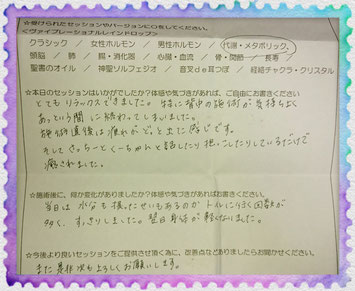 ☆受けられたセッションやバージョンに○をしてください。
<ヴァイブレーショナルレインドロップ>
クラシック ／ 女性ホルモン ／ 男性ホルモン ／ 代謝・メタボリック
頭脳 ／ 肺 ／ 腸・消化器 ／ 心臓・血流 ／ 骨・関節 ／ 長寿
聖書のオイル ／ 神聖ソルフェジオ ／ 音叉de耳つぼ ／ 経絡チャクラ・クリスタル
☆本日のセッションはいかがでしたか?体感や気づきがあれば、ご自由にお書きください
とてもリラックスできました。特に背中の施術が気持ちよく
あっという間に終わってしまいました。
施術直後は疲れがどっとでた感じです。
そしてさっちーとくーちゃんと話したり抱っこしたりしているだけで
癒されました。
☆施術後に、何か変化がありましたか?体感や気づきがあればお書きください。
当日は水分も摂ったせいもあるのかトイレに行く回数が
多く、すっきりしました。翌日身体が軽くなりました。
☆今後より良いセッションをご提供させて頂く為に、改善点などありましたらお聞かせください。
また是非次もよろしくお願いします。